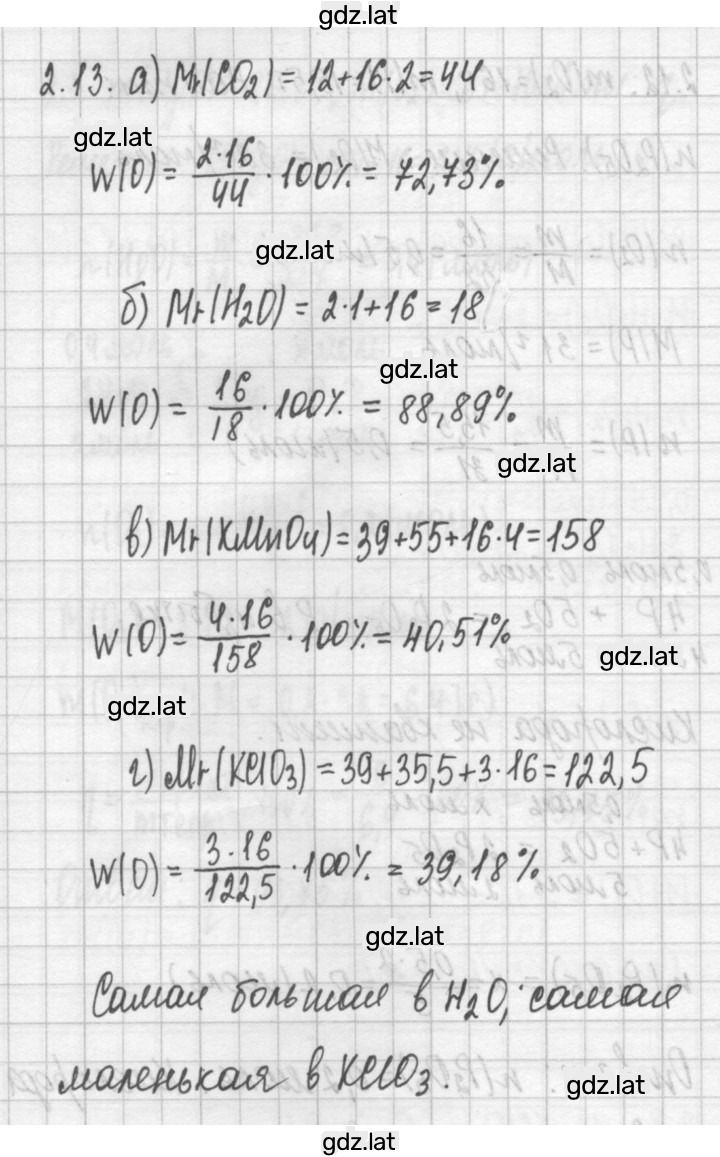 gdz.lat
2.13. а) Mr(CO₂) = 12+16·2 = 44
gdz.lat
W(O) = 2·16/44 · 100% = 72,73%.
gdz.lat
б) Mr(H₂O) = 2·1+16 = 18
gdz.lat
W(O) = 16/18 · 100% = 88,89%.
gdz.lat
в) Mr(KMnO₄) = 39+55+16·4 = 158
W(O) = 4·16/158 · 100% = 40,51%
gdz.lat
gdz.lat
г) Mr(KClO₃) = 39+35,5+3·16 = 122,5
W(O) = 3·16/122,5 · 100% = 39,18%
gdz.lat
Самая большая в H₂O; самая
маленькая в KClO₃.
gdz.lat
gdz.lat